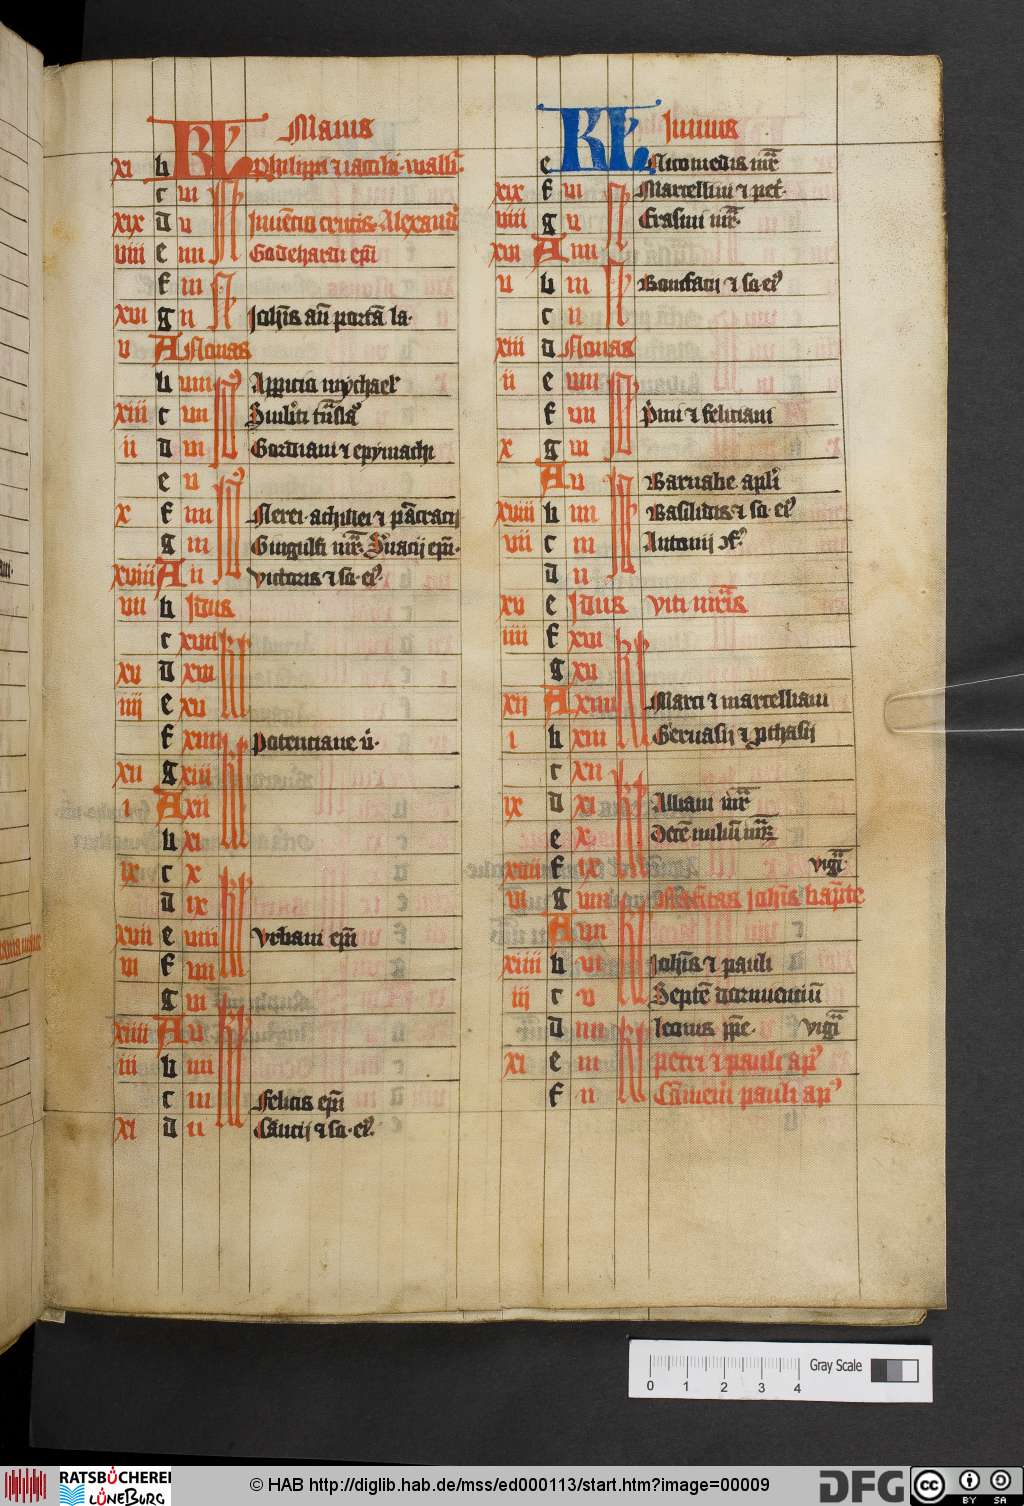 KL Maius
xi b Philippi ⁊ iacobi · walb̄.
c vi N
xix d v Inuētio crucis · Alexand̓
viii e iiii Godehardi ep̄i
f iii
xvi g ii Joh̄is an̄ portā la·
v A Nonas
b viii Appitio mychael̓
xiii c vii
ii d vi Gordiani ⁊ epymachi
e v
x f iiii Nerei · achillei ⁊ pācracij
g iii Gingulfi mr̄. S̓uacij ep̄i·
xviii A ii Victoris ⁊ so· ei⁹.
vii b Idus
c xvii kl
xv d xvi
iiii e xv
f xiiii Potenciane v̄·
xii g xiii
i A xii
b xi
ix c x
d ix
xvii e viii Vrbani ep̄i
vi f vii
g vi
xiiii A v
iii b iiii
c iii Felicis ep̄i
xi d ii Cāucij ⁊ so· ei⁹.
KL Junius
e Nicomedis mr̄
xix f iiii Marcellini ⁊ pet̓·
viii g iii Erasmi mr̄·
xvi A ii
v b Bonifacij ⁊ so· ei⁹
c ii
xiii d Nonas
ii e viii
f vii P̓mi ⁊ feliciani
x g vi
A v Barnabe apl̓i
xviii b iiii Basilidis ⁊ so· ei⁹
vii c iii Antonij ꝯf.
d ii
xv e Idus Viti mr̄is
iiii f xviii kl
g xvii
xii A xiiii Marci ⁊ marcelliani
i b xiii Geruasij ⁊ ꝓthasij
c xii
ix d xi Albani mr̄
e x Decē miliū mr̄
xvii f ix vigi̓
vi g viii Natiuitas joh̄is bap̄te
A vii
xiiii b vi Joh̄is ⁊ pauli
iii c v Septē dormienciū
d iiii Leonis pp̄e· vigi̓
xi e iii Petri ⁊ pauli ap⁹
f ii Cōmem̄ pauli ap⁹
0 1 2 3 4
Gray Scale
RATSBÜCHEREI LÜNEBURG
© HAB http://diglib.hab.de/mss/ed000113/start.htm?image=00009
DFG
CC BY SA